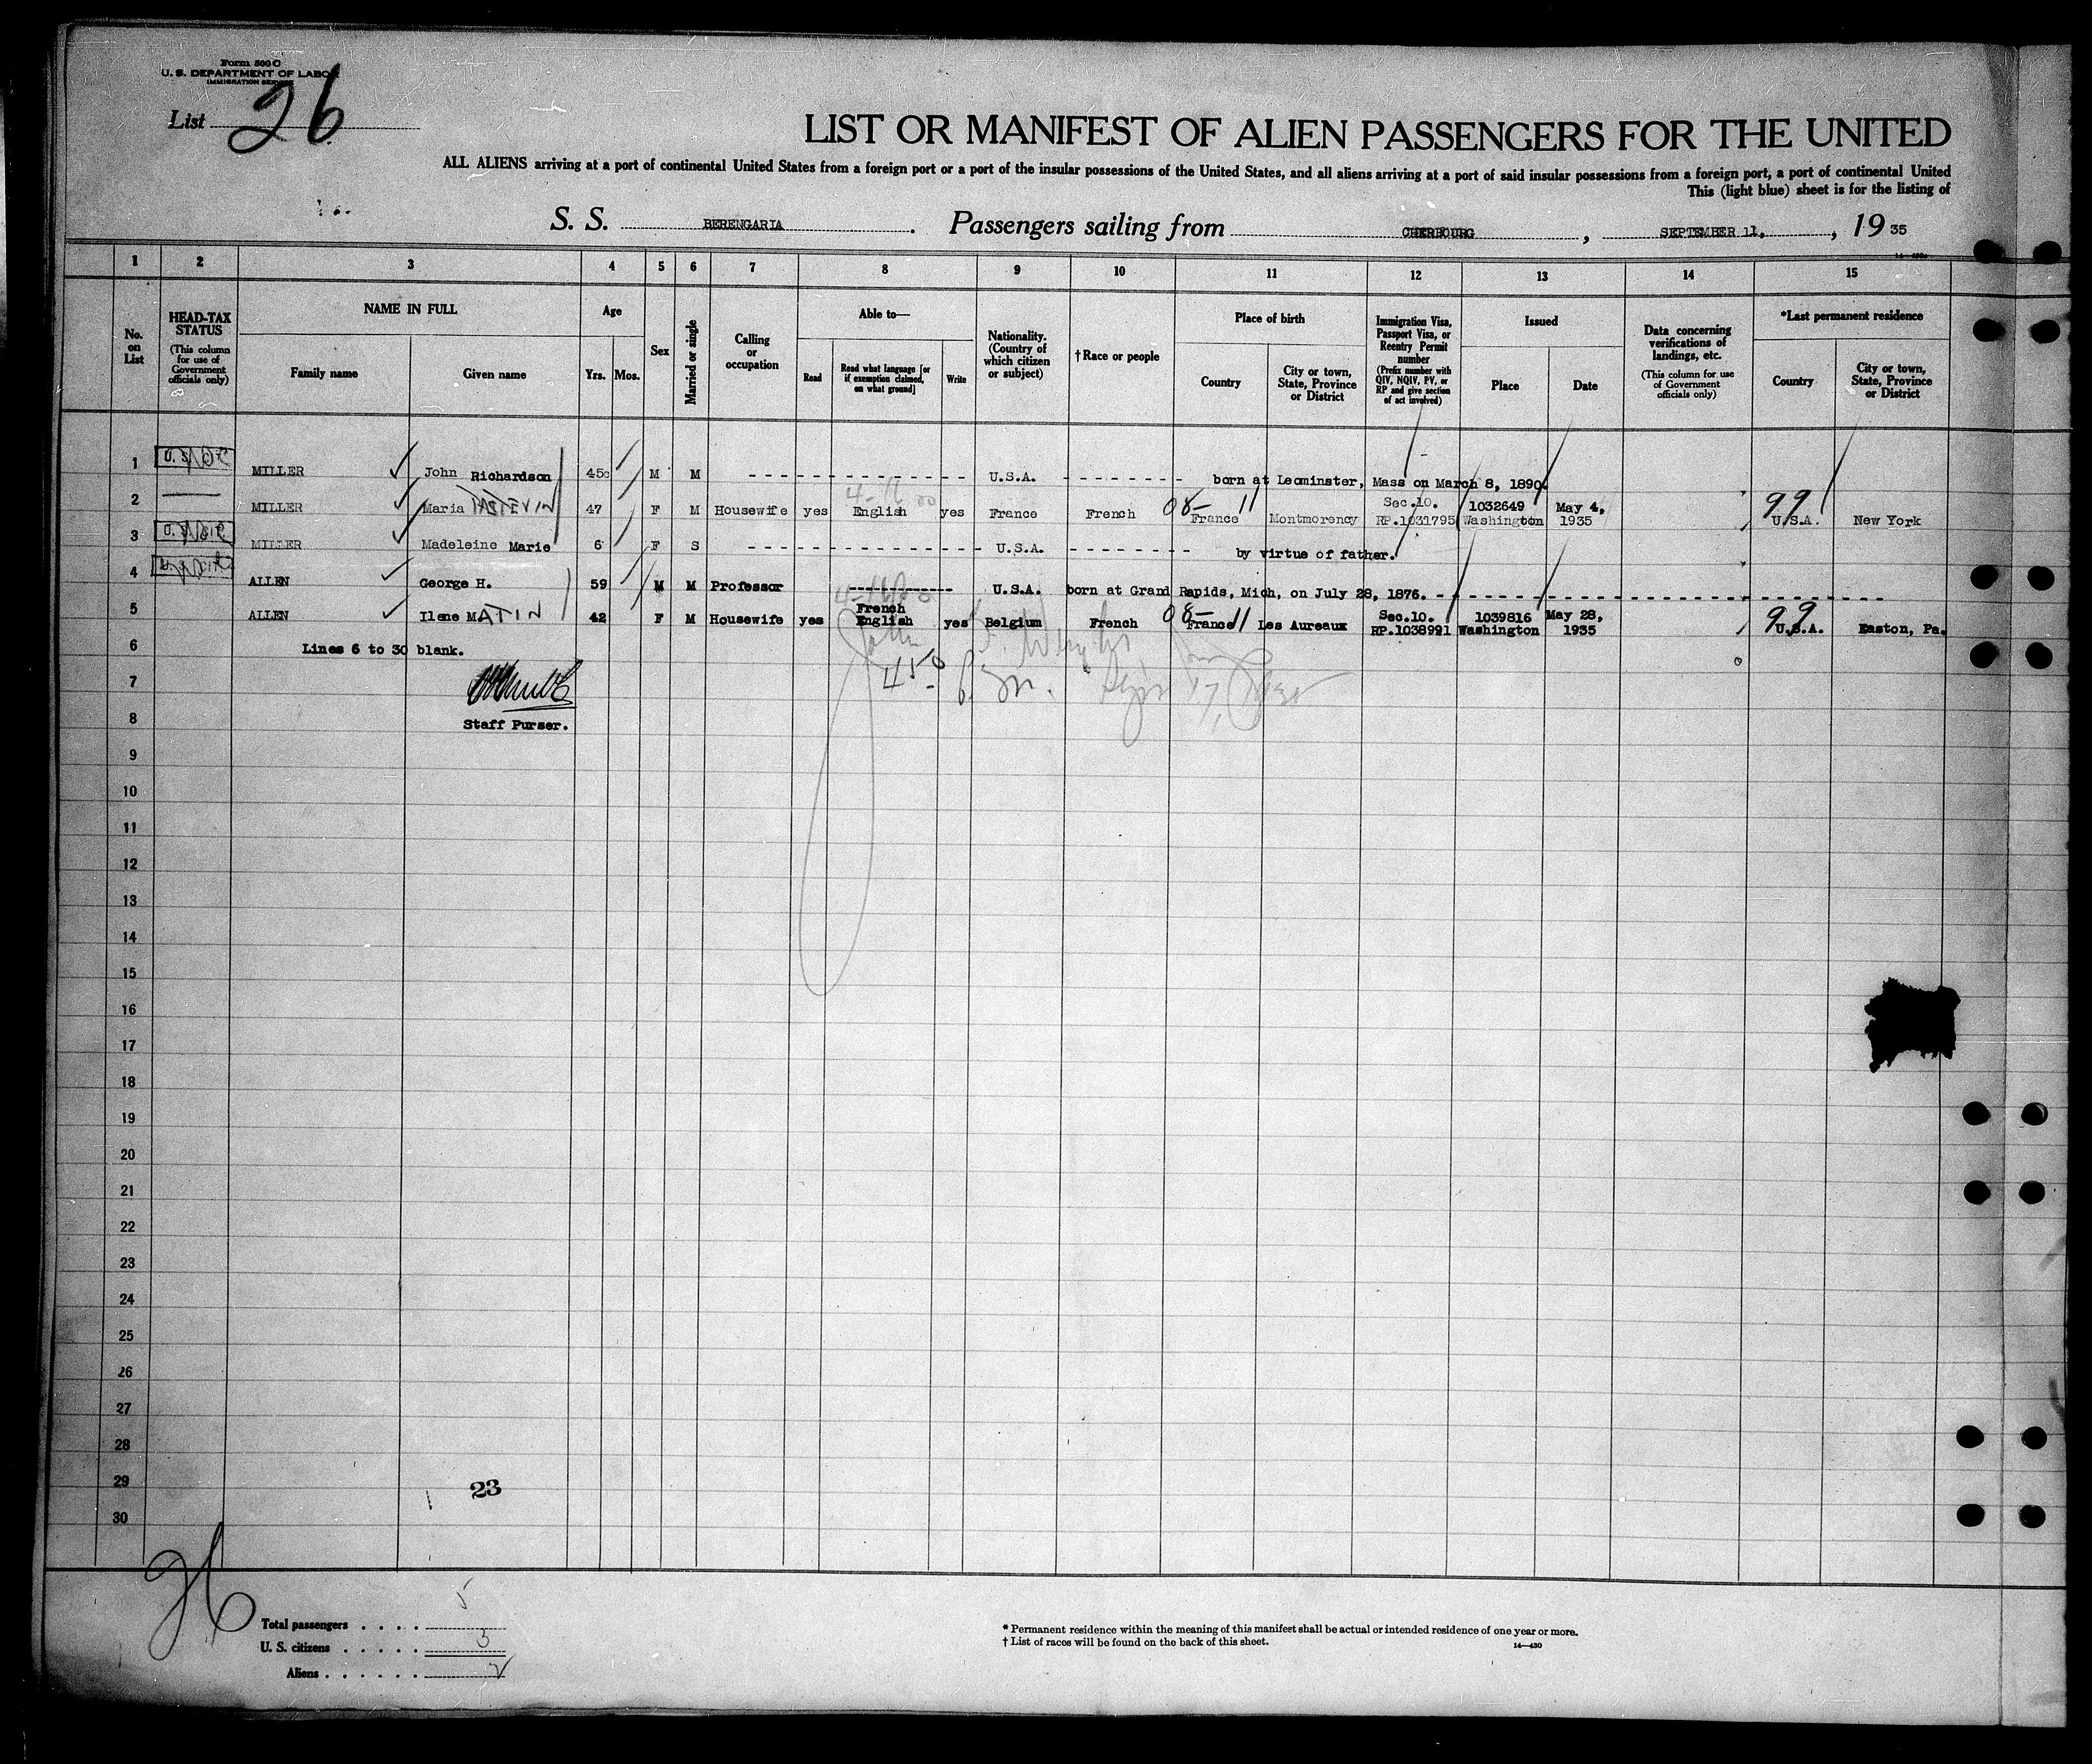 Form 500 C
U. S. DEPARTMENT OF LABOR
IMMIGRATION SERVICE
List 26
LIST OR MANIFEST OF ALIEN PASSENGERS FOR THE UNITED
ALL ALIENS arriving at a port of continental United States from a foreign port or a port of the insular possessions of the United States, and all aliens arriving at a port of said insular possessions from a foreign port, a port of continental United
This (light blue) sheet is for the listing of
S. S. BERENGARIA. Passengers sailing from CHERBOURG, SEPTEMBER 11, , 19 35
1 2 3 4 5 6 7 8 9 10 11 12 13 14 15
No. on List
HEAD-TAX STATUS
(This column for use of Government officials only)
NAME IN FULL
Family name
Given name
Age
Yrs.
Mos.
Sex
Married or single
Calling or occupation
Able to—
Read
Read what language [or if exemption claimed, on what ground]
Write
Nationality. (Country of which citizen or subject)
†Race or people
Place of birth
Country
City or town, State, Province or District
Immigration Visa, Passport Visa, or Reentry Permit number
(Prefix number with QIV, NQIV, PV, or RP and give section of act involved)
Issued
Place
Date
Data concerning verifications of landings, etc.
(This column for use of Government officials only)
*Last permanent residence
Country
City or town, State, Province or District
1 MILLER John Richardson 45 M M U.S.A. born at Leominster, Mass on March 8, 1890.
2 MILLER Maria 47 F M Housewife yes English yes France French 08- 11 France Montmorency Sec.10. RP.1031795 1032649 Washington May 4, 1935 99 U.S.A. New York
3 MILLER Madeleine Marie 6 F S U.S.A. by virtue of father.
4 ALLEN George H. 59 M M Professor U.S.A. born at Grand Rapids, Mich, on July 28, 1876.
5 ALLEN Ilene MATIN 42 F M Housewife yes French English yes Belgium French 08- 11 France Les Aureaux Sec.10. RP.1038991 1039816 Washington May 28, 1935 99 U.S.A. Easton, Pa.
6 Lines 6 to 30 blank.
7
Staff Purser.
8
9
10
11
12
13
14
15
16
17
18
19
20
21
22
23
24
25
26
27
28
29
23
30
26
Total passengers . . . . 5
U. S. citizens . . . . . 3
Aliens . . . . . . 2
* Permanent residence within the meaning of this manifest shall be actual or intended residence of one year or more.
† List of races will be found on the back of this sheet. 14—430